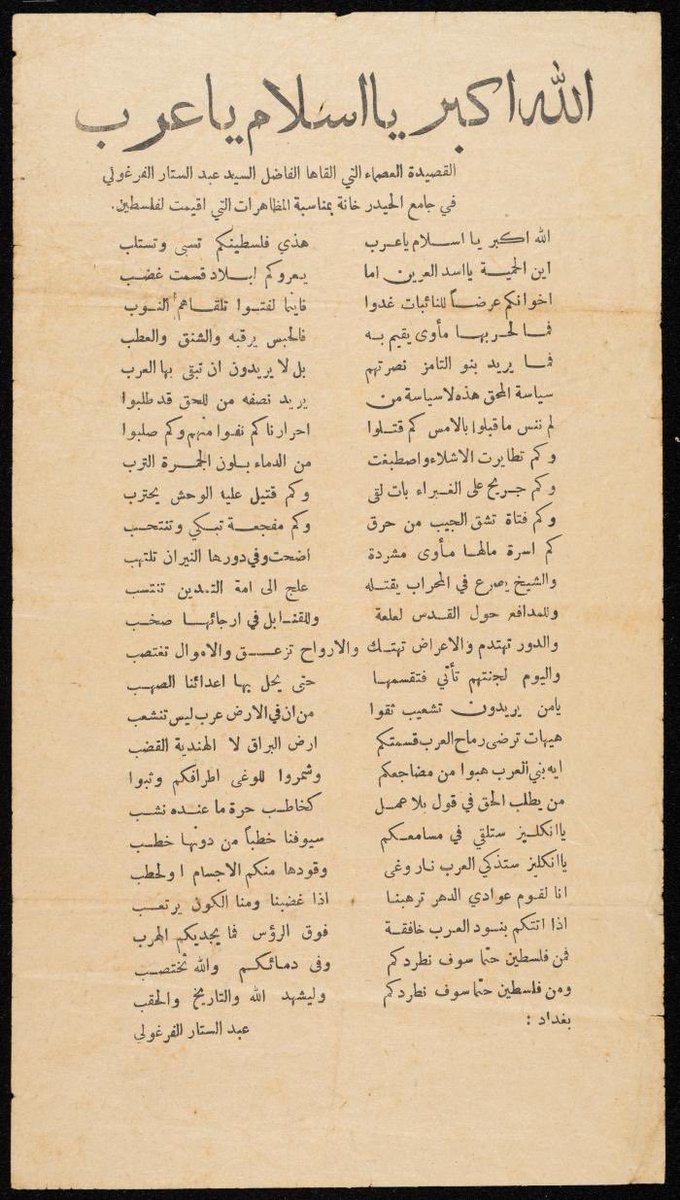 الله اكبر يا اسلام يا عرب
القصيدة العصماء التي القاها الفاضل السيد عبد الستار القرغولي
في جامع الحيدر خانة بمناسبة المظاهرات التي اقيمت لفلسطين.
الله اكبر يا اسلام ياعرب هذي فلسطينكم تسبى وتستلب
اين الحمية يااسد العرين اما يعروكم لبلاد قسمت غضب
اخوانكم عرضاً للنائبات غدوا فاينما لفتوا تلقاهم النوب
فما لحر بها مأوى يقيم به فالحبس يرقبه والشنق والعطب
فما يريد بنو التامز نصرتهم بل لا يريدون ان تبقى بها العرب
سياسة المحق هذه لا سياسة من يريد نصفه من للحق قد طلبوا
لم ننس ما قبلوا بالامس كم قتلوا احرارنا كم نفوا منهم وكم صلبوا
وكم تطايرت الاشلاء واصطبغت من الدماء بلون الجمرة الترب
وكم جريح على الغبراء بات لقى وكم قتيل عليه الوحش يحترب
وكم فتاة تشق الجيب من حرق وكم مفجعة تبكي وتنتحب
كم اسرة مالها مأوى مشردة اضحت وفي دورها النيران تلتهب
والشيخ يصرع في المحراب يقتله علج الى امة التمدين تنتسب
وللمدافع حول القدس لعلعة وللقنابل في ارجائها صخب
والدور تهتدم والاعراض تهتك والارواح تزعق والاموال تغتصب
واليوم لجنتهم تأتي فتقسمها حتى يحل بها اعدائنا الصهب
يامن يريدون تشعيب ثقوا من ان في الارض عرب ليس تنشعب
هيهات ترضى رماح العرب قسمتكم ارض البراق لا الهندية القضب
ايه بني العرب هبوا من مضاجعكم وشمروا للوغى اطرافكم وثبوا
من يطلب الحق في قول بلا عمل كخاطب حرة ما عنده نشب
ياانكليز ستلقي في مسامعكم سيوفنا خطباً من دونها خطب
ياانكليز ستذكي العرب نار وغى وقودها منكم الاجسام او لحطب
انا لقوم عوادي الدهر ترهبنا اذا غضبنا ومنا الكون يرتعب
اذا اتتكم بنود العرب خافقة فوق الرؤس فما يجديكم الهرب
فمن فلسطين حتما سوف نطردكم وفى دمائكم والله تختضب
ومن فلسطين حتما سوف نطردكم وليشهد الله والتاريخ والحقب
بغداد : عبد الستار القرغولي